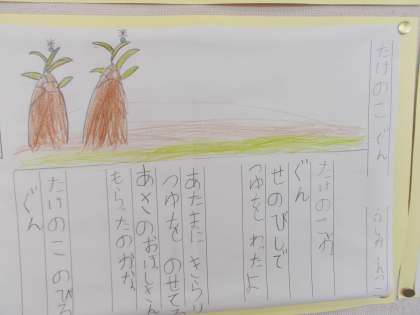 たけのこ ぐん
たけのこが
ぐん
せのびして
つちを わったよ
あたまに きらり
つゆを のせてる
あさのおほしさん
もらったのかな
たけのこ のびろ
ぐん